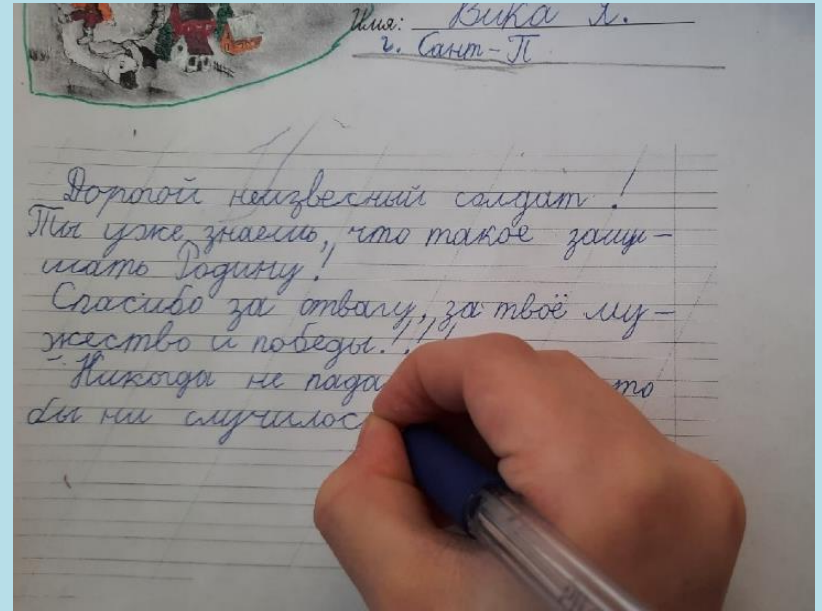 Имя: Вика Х.
г. Сант-П
Дорогой неизвесный солдат!
Ты уже знаешь, что такое защи-
щать Родину!
Спасибо за отвагу, за твоё му-
жество и победы!!!!
Никогда не пада то
бы ни случилос